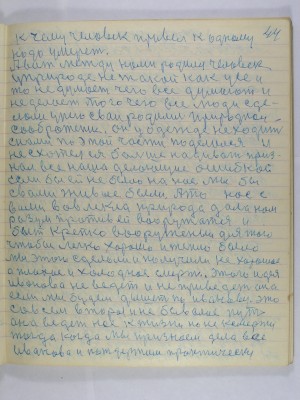 44
к чему человек привел к одному
надо умереть.
А вот между ними родился человек
у природе не такой как уже и
то не думает чего все думают и
не делает того чего все люди сде-
лали у него свои родили природное
соображение, он у детже находит
силами по этой части поделился и
не схотел ея больше называть приз-
нал все наша делающие ошибкой
если бы ей не было на нас мы бы
сами живые были. А то нас с
вами вовлекла природа дала нам
разум против ей вооружатся и
быть крепко вооруженны для того
чтобы легко хорошо и тепло было
мы этого сделали и получили не хорошое
а плохое и холодное смерть. Этого идея
иванова не ведет и не приведет она
если мы будем дышет по иванову. Это
совсем второй и не бывалое путь
она ведет нас к жизни но не к смерти
тогда когда мы признаем дела все
Иванова и поддержим практически